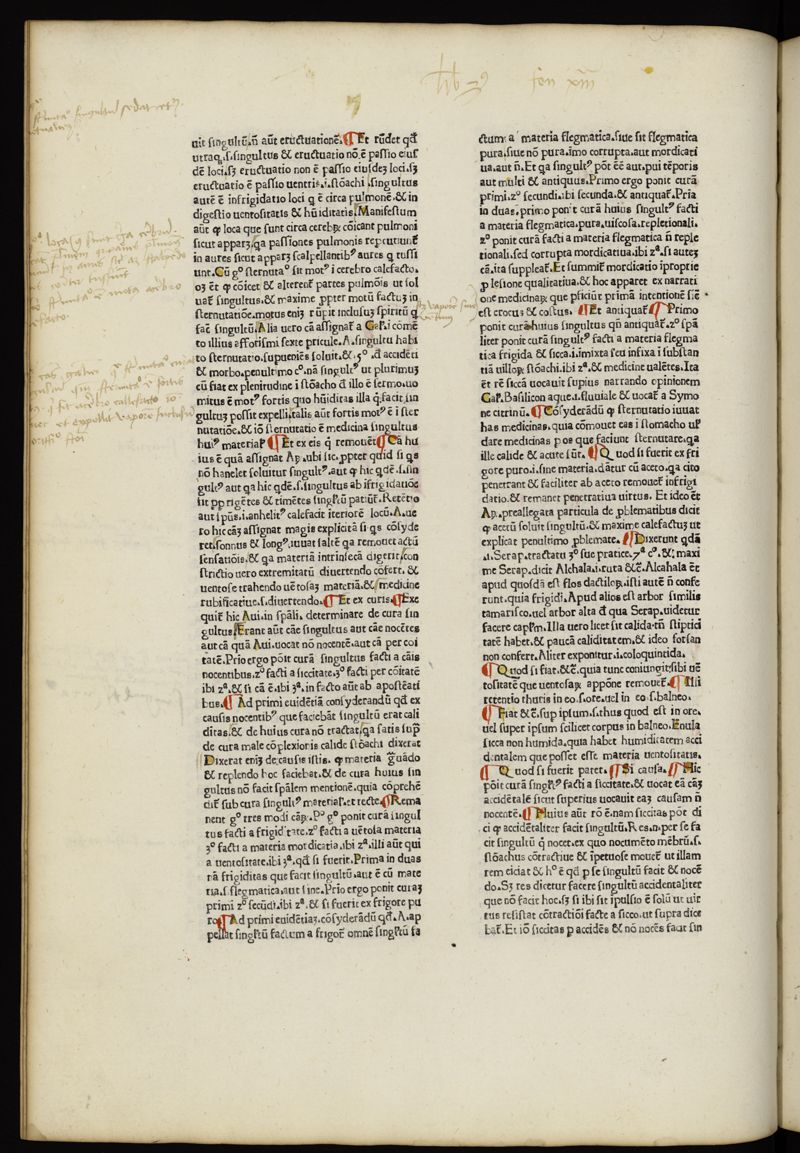 lib 3⁹ fen xiii
uit singultū.n̄ aūt eructuationē.¶Et rūdet qđ
utraq.s.singultus & eructuatio nō.ē passio eiusͬ
dē loci.sȝ eructuatio non ē passio eiusdeȝ loci.sȝ
eructuatio ē passio uentris.i.stōachi.singultus
autē ē infrigidatio loci q ē circa pulmonē.& in
digestio uentositatis & hūiditatis.Manifestum
aūt ꝙ loca que sunt circa cerebꝝ cōicant pulmoni
sicut apparȝ qa passiones pulmonis
in aures sicut apparȝ scalpellantibꝰ aures q tussi
unt.Cū gᵒ sternutaᵒ sit motꝰ i cerebro calefacto.
oȝ ēt ꝙ cōicet & alteret̃ partes pulmōis ut sol
uat̃ singultus.& maxime ꝓpter motū factuȝ in
sternutatiōe.motus eniȝ rūpit inclusuȝ spiritū q
fac̄ singultū.Alia uero cā assignat̃ a Gaꝉ.i cōmē
to illius afforismi sexte pticule.A.singultu habi
to sternutatio.supueniēs soluit.&.5ᵒ.đ accidēti
& morbo.penultimo cᵒ.nā singultꝰ ut plurimuȝ
cū fiat ex plenitudine i stōacho đ illo ē sermo.uo
mitus ē motꝰ fortis quo hūiditas illa q.facit.sin
gultuȝ possit expelli.talis aūt fortis motꝰ ē i ster
nutatiōe.& iō sternutatio ē medicina singultus
huiꝰ materiaꝉ ¶Et ex eis q remouēt ¶Cā hu
ius ē quā assignat Aꝑ.ubi sic.ꝓpter quid si qs
nō hanelet soluitur singultꝰ.aut ꝙ hic qdē.s.sin
gultꝰ aut qa hic qdē.s.singultus ab ifrigidatiōe
fit pp rigētes & timētes singꝉtū patiūt̃.Retētio
aut i pūs.i.anhelitꝰ calefacit iteriorē locū.A.ue
ro hic cāȝ assignat magis explicitā si qs cōsyde
ret.somnus & longꝰ.iuuat saltē qa remouet actū
sensatiōis.& qa materiā intrinsecā digerit.con
strictio uero extremitatū diuertendo cōfert.&
uentose trahendo uētosaȝ materiā.& medicine
rubificatiue.s.diuertendo.¶Et ex curis ¶Exe
quit̃ hic Aui.in spāli. determinare de cura sin
gultus.Erant aūt cāe singultus aut cāe nocētes
aut cā quā Aui.uocat nō nocentē.aut cā per coi
tatē.Prio ergo pōit curā singultus facti a cāis
nocentibus.2ᵒ facti a siccitate.3ᵒ facti per cōitatē
ibi 2ᵃ.& si cā ē.ibi 3ᵃ.in facto aūt ab apostēati
bus.¶Ad primi euidētiā consyderandū qđ ex
causis nocentibꝰ que faciebāt singultū erat cali
ditas.& de huius cura nō tractat.qa satis sup̄
de cura male cōplexioris calide stōachi dixerat
Dixerat eniȝ de causis istis.ꝙ materia ḡuādo
& replendo hoc faciebat.& de cura huius sin
gultus nō facit spālem mentionē.quia cōprehē
dit̃ sub cura singultꝰ materiaꝉ.et recte.¶Rema
nent gᵒ tres modi cāꝝ.Pᵒ gᵒ ponit curā singul
tus facti a frigiditate.2ᵒ facti a uētosa materia
3ᵒ facti a materia mordicatia.ibi 2ᵃ.illi aūt qui
a uentositate.ibi 3ᵃ.qđ si fuerit.Prima in duas
rā frigiditas que facit singultū.aut ē cū mate
ria.s.flegmatica.aut sine.Prio ergo ponit curaȝ
primi 2ᵒ secūdi.ibi 2ᵃ.& si fuerit ex frigore pu
ro.¶Ad primi euidētiaȝ.cōsyderādū qđ.A.ap
pellat singꝉtū factum a frigoꝛ̃ omnē singꝉtū fa
ctum a materia flegmatica.siue sit flegmatica
pura.siue nō pura.imo corrupta.aut mordicati
ua.aut n̄.Et qa singultꝰ pōt ēē aut.pui tēporis
aut multi & antiquus.Primo ergo ponit curā
primi.2ᵒ secundi.ibi secunda.& antiquat̃.Pria
in duas.primo ponit curā huius singultꝰ facti
a materia flegmatica.pura.uiscosa.repletionali.
2ᵒ ponit curā facti a materia flegmatica n̄ reple
tionali.sed corrupta mordicatiua.ibi 2ᵃ.si auteȝ
cā.ita suppleat̃.Et summit̃ mordicatio iproprie
ꝓ lesione qualitatiua.& hoc apparet ex narrati
one medicinaꝝ que pficiūt primā intentionē sic̄
est crocus & costus.¶Et antiquat̃ ¶Primo
ponit curā huius singultus qn̄ antiquat̃.2ᵒ spā
liter ponit curā singultꝰ facti a materia flegma
tica frigida & sicca.i.imixta seu infixa i substan
tiā uilloꝝ stōachi.ibi 2ᵃ.& medicine ualētes.Ita
ēt rē siccā uocauit supius narrando opinionem
Gaꝉ.Basilicon aque.i.fluuiale & uocat̃ a Symo
ne citrinū.¶Cōsyderādū ꝙ sternutatio iuuat
has medicinas.quia cōmouet eas i stomacho uꝉ
dare medicinas p os que faciunt sternutare.qa
ille calide & acute sūt.¶Quod si fuerit ex fri
gore puro.i.sine materia.datur cū aceto.qa cito
penetrant & faciliter ab aceto remouet̃ infrigi
datio.& remanet penetratiua uirtus.Et ideo ēt
Aꝑ.preallegata particula de ꝓblematibus dicit
ꝙ acetū soluit singultū.& maxime calefactuȝ ut
explicat penultimo ꝓblemate.¶Dixerunt qdā
.i.Serap.tractatu 3ᵒ sue pratice.7ᵃ cᵒ.&.maxi
me Serap.dicit Alchala.i.ruta &c̄.Alcahala ēt
apud quosdā est flos dactiloꝝ.isti autē n̄ confe
runt.quia frigidi.Apud alios est arbor similis
tamarisco.uel arbor alta đ qua Serap.uidetur
facere capꝉm.Illa uero licet sit calida.tn̄ stiptici
tatē habet.& paucā caliditatem.& ideo forsan
non confert.Aliter exponitur.i.coloquintida.
¶Quod si fiat.&c̄.quia tunc coniungit̃ sibi uē
tositatē que uentosaꝝ appōne remouet̃.¶Illi
retentio thuris in eo.s.ore.uel in eo.s.balneo.
¶Fiat &c̄.sup ipsum.s.thus quod est in ore.
uel super ipsum scilicet corpus in balneo.Enula
sicca non humida.quia habet humiditatem acci
dentalem que posset esse materia uentositatis.
¶Quod si fuerit paret.¶Si causa.¶Hic
pōit curā singꝉtꝰ facti a siccitate.& uocat eā cāȝ
accidētalē sicut superius uocauit eaȝ causam n̄
nocentē.¶Huius aūt rō ē.nam siccitas pōt di
ci ꝙ accidētaliter facit singultū.Res.n.per se fa
cit singultū q nocet.ex quo nocumēto mēbrū.s.
stōachus cōtractiue & īpetuose mouet̃ ut illam
rem eiciat & hᵒ ē qđ p se singultū facit & nocē
do.Sȝ res dicetur facere singultū accidentaliter
que nō facit hoc.sȝ si ibi sit ipulsio ē solū ut uir
tus resistat cōtractiōi facte a sicco.ut supra dice
bat̃.Et iō siccitas p accidēs & nō nocēs facit sin